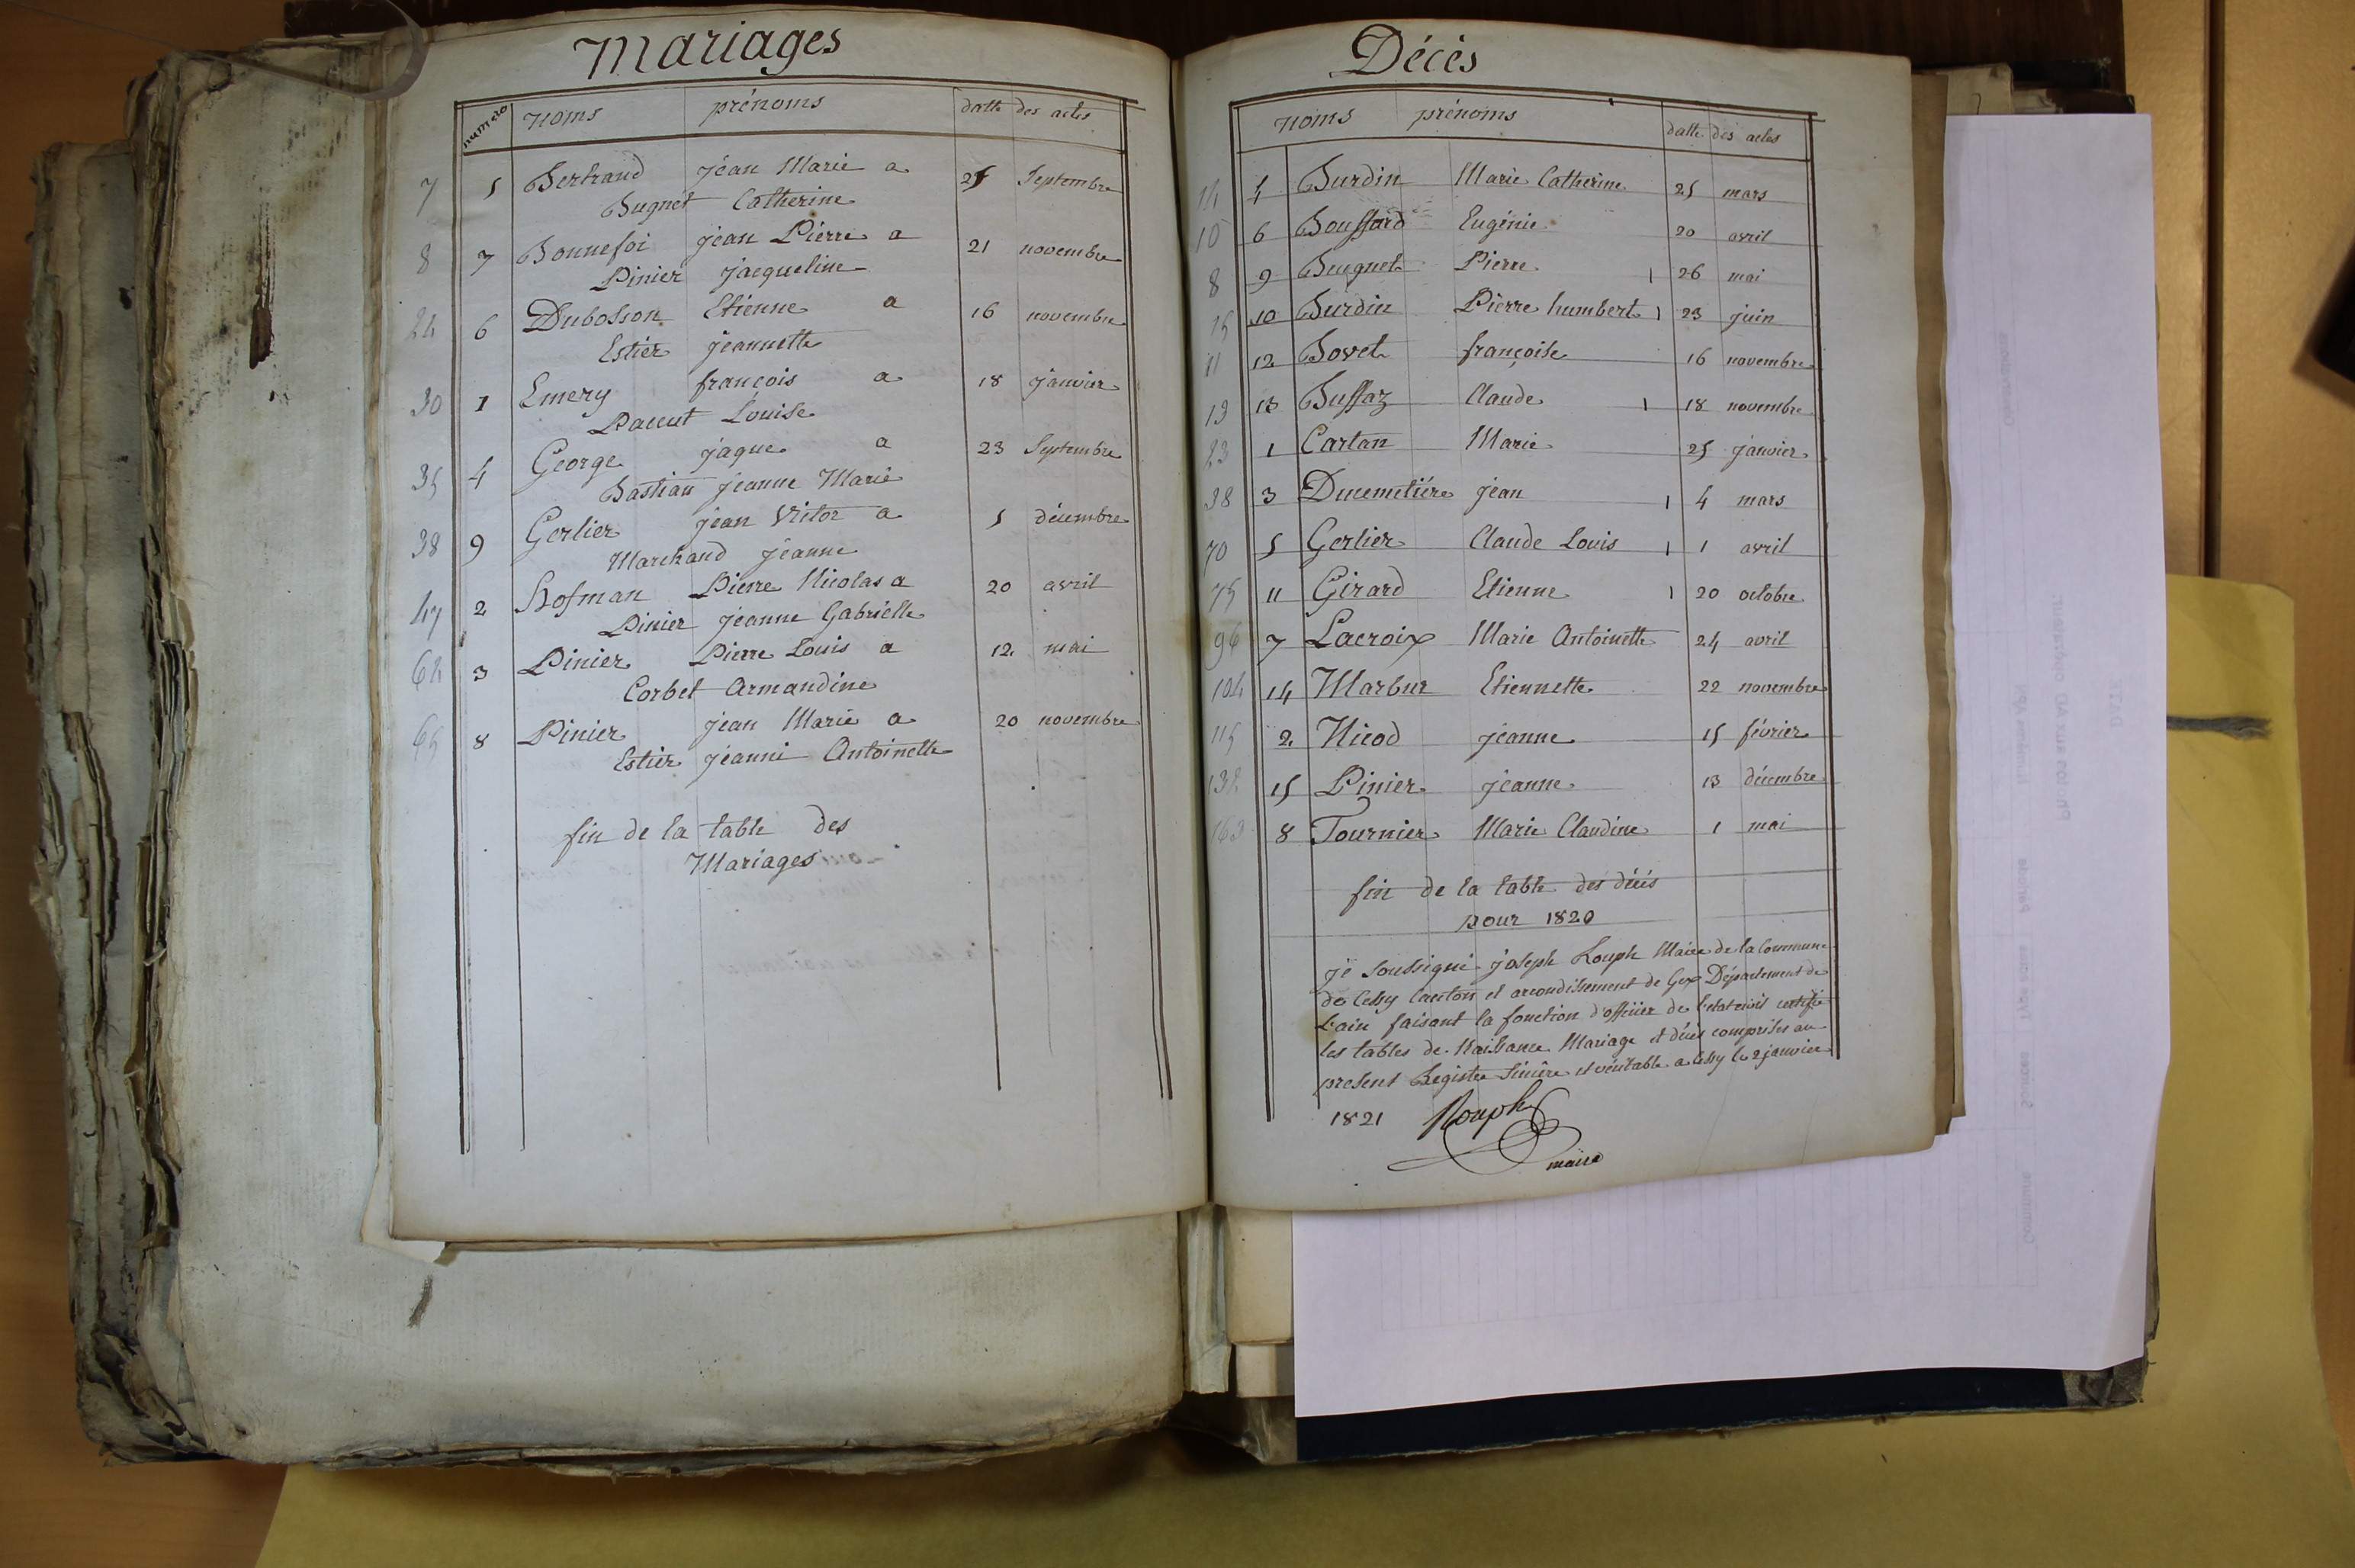 Mariages
numero noms prénoms datte des actes
7 5 Bertrand jéan Marie a 25 Septembre
Bugnet Catherine
8 7 Bonnefoi jéan Pierre a 21 novembre
Pinier jacqueline
24 6 Dubosson Etienne a 16 novembre
Estier jeannette
30 1 Emery françois a 18 janvier
Paccut Louise
35 4 George jaque a 23 Septembre
Bastian jeanne Marie
38 9 Gerlier jéan Victor a 5 décembre
Marchand jéanne
47 2 Hofman Pierre Nicolas a 20 avril
Pinier jéanne Gabrielle
64 3 Pinier Pierre Louis a 12 mai
Corbet Armandine
65 8 Pinier jéan Marie a 20 novembre
Estier jéanne Antoinette
fin de la table des
Mariages
Décès
noms prénoms datte des actes
14 4 Burdin Marie Catherine 25 mars
10 6 Bouffard Eugénie 20 avril
8 9 Bugnet Pierre 1 26 mai
15 10 Burdin Pierre humbert 1 23 juin
11 12 Bovet françoise 16 novembre
19 13 Buffaz Claude 1 18 novembre
23 1 Cartan Marie 25 janvier
38 3 Ducemetiére jéan 1 4 mars
70 5 Gerlier Claude Louis 1 1 avril
75 11 Girard Etienne 1 20 octobre
96 7 Lacroix Marie Antoinette 24 avril
104 14 Marbur Etiennette 22 novembre
115 2 Nicod jéanne 15 février
132 15 Pinier jéanne 13 décembre
8 Tournier Marie Claudine 1 mai
fin de la table des décés
pour 1820
je soussigné joseph Rouph Maire de la Commune
de Cessy Canton et arrondissement de Gex Département de
L'ain faisant la fonction d'officier de l'etat civil certifie
les tables de Naissance Mariage et décés comprises au
present Registre Sincère et véritable a Cessy le 2 janvier
1821 Rouph
maire